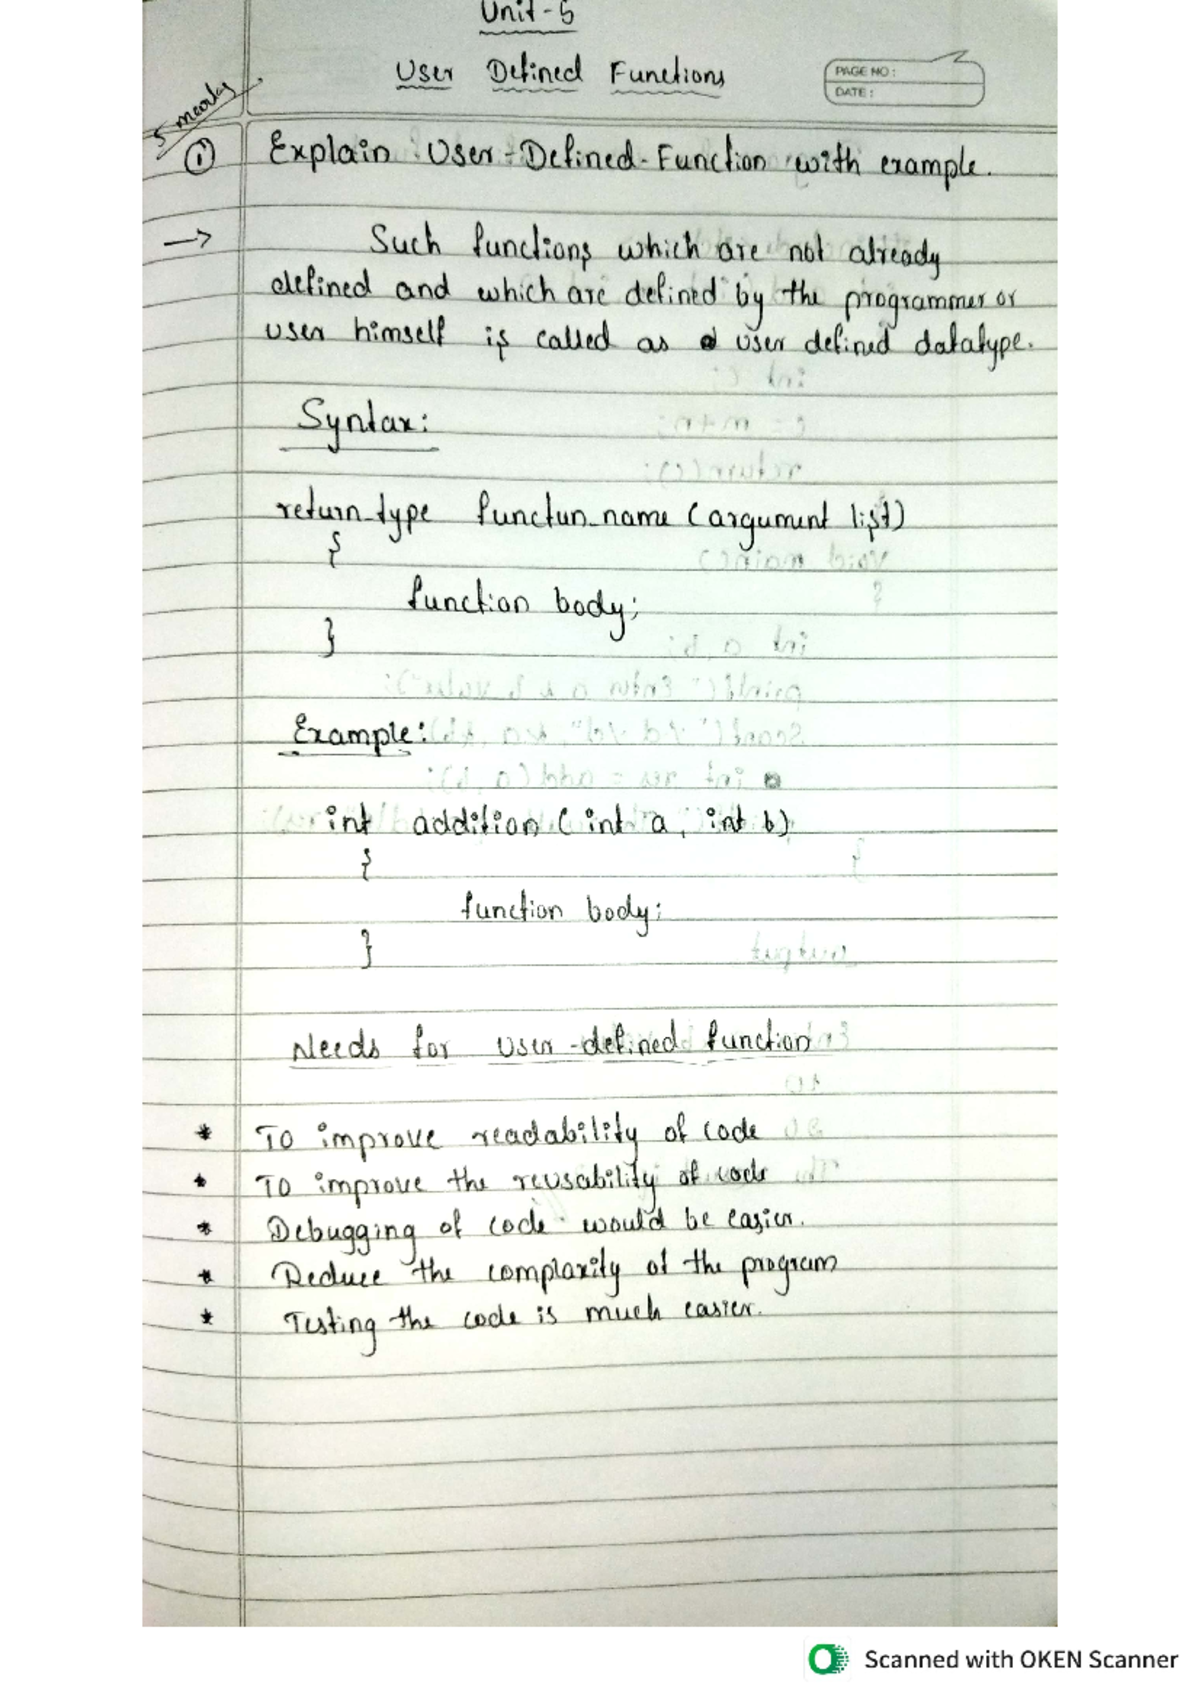 Unit-5
User Defined Functions
PAGE NO:
DATE:
5 marks
① Explain User-Defined-Function with example.
→ Such functions which are not already
defined and which are defined by the programmer or
user himself is called as a user defined datatype.
Syntax:
return_type functun_name (argument list)
{
function body;
}
Example:
int addition (int a, int b)
{
function body;
}
Needs for user-defined function
* To improve readability of code
* To improve the reusability of code
* Debugging of code would be easier.
* Reduce the complaxity of the program
* Testing the code is much easier.
Scanned with OKEN Scanner